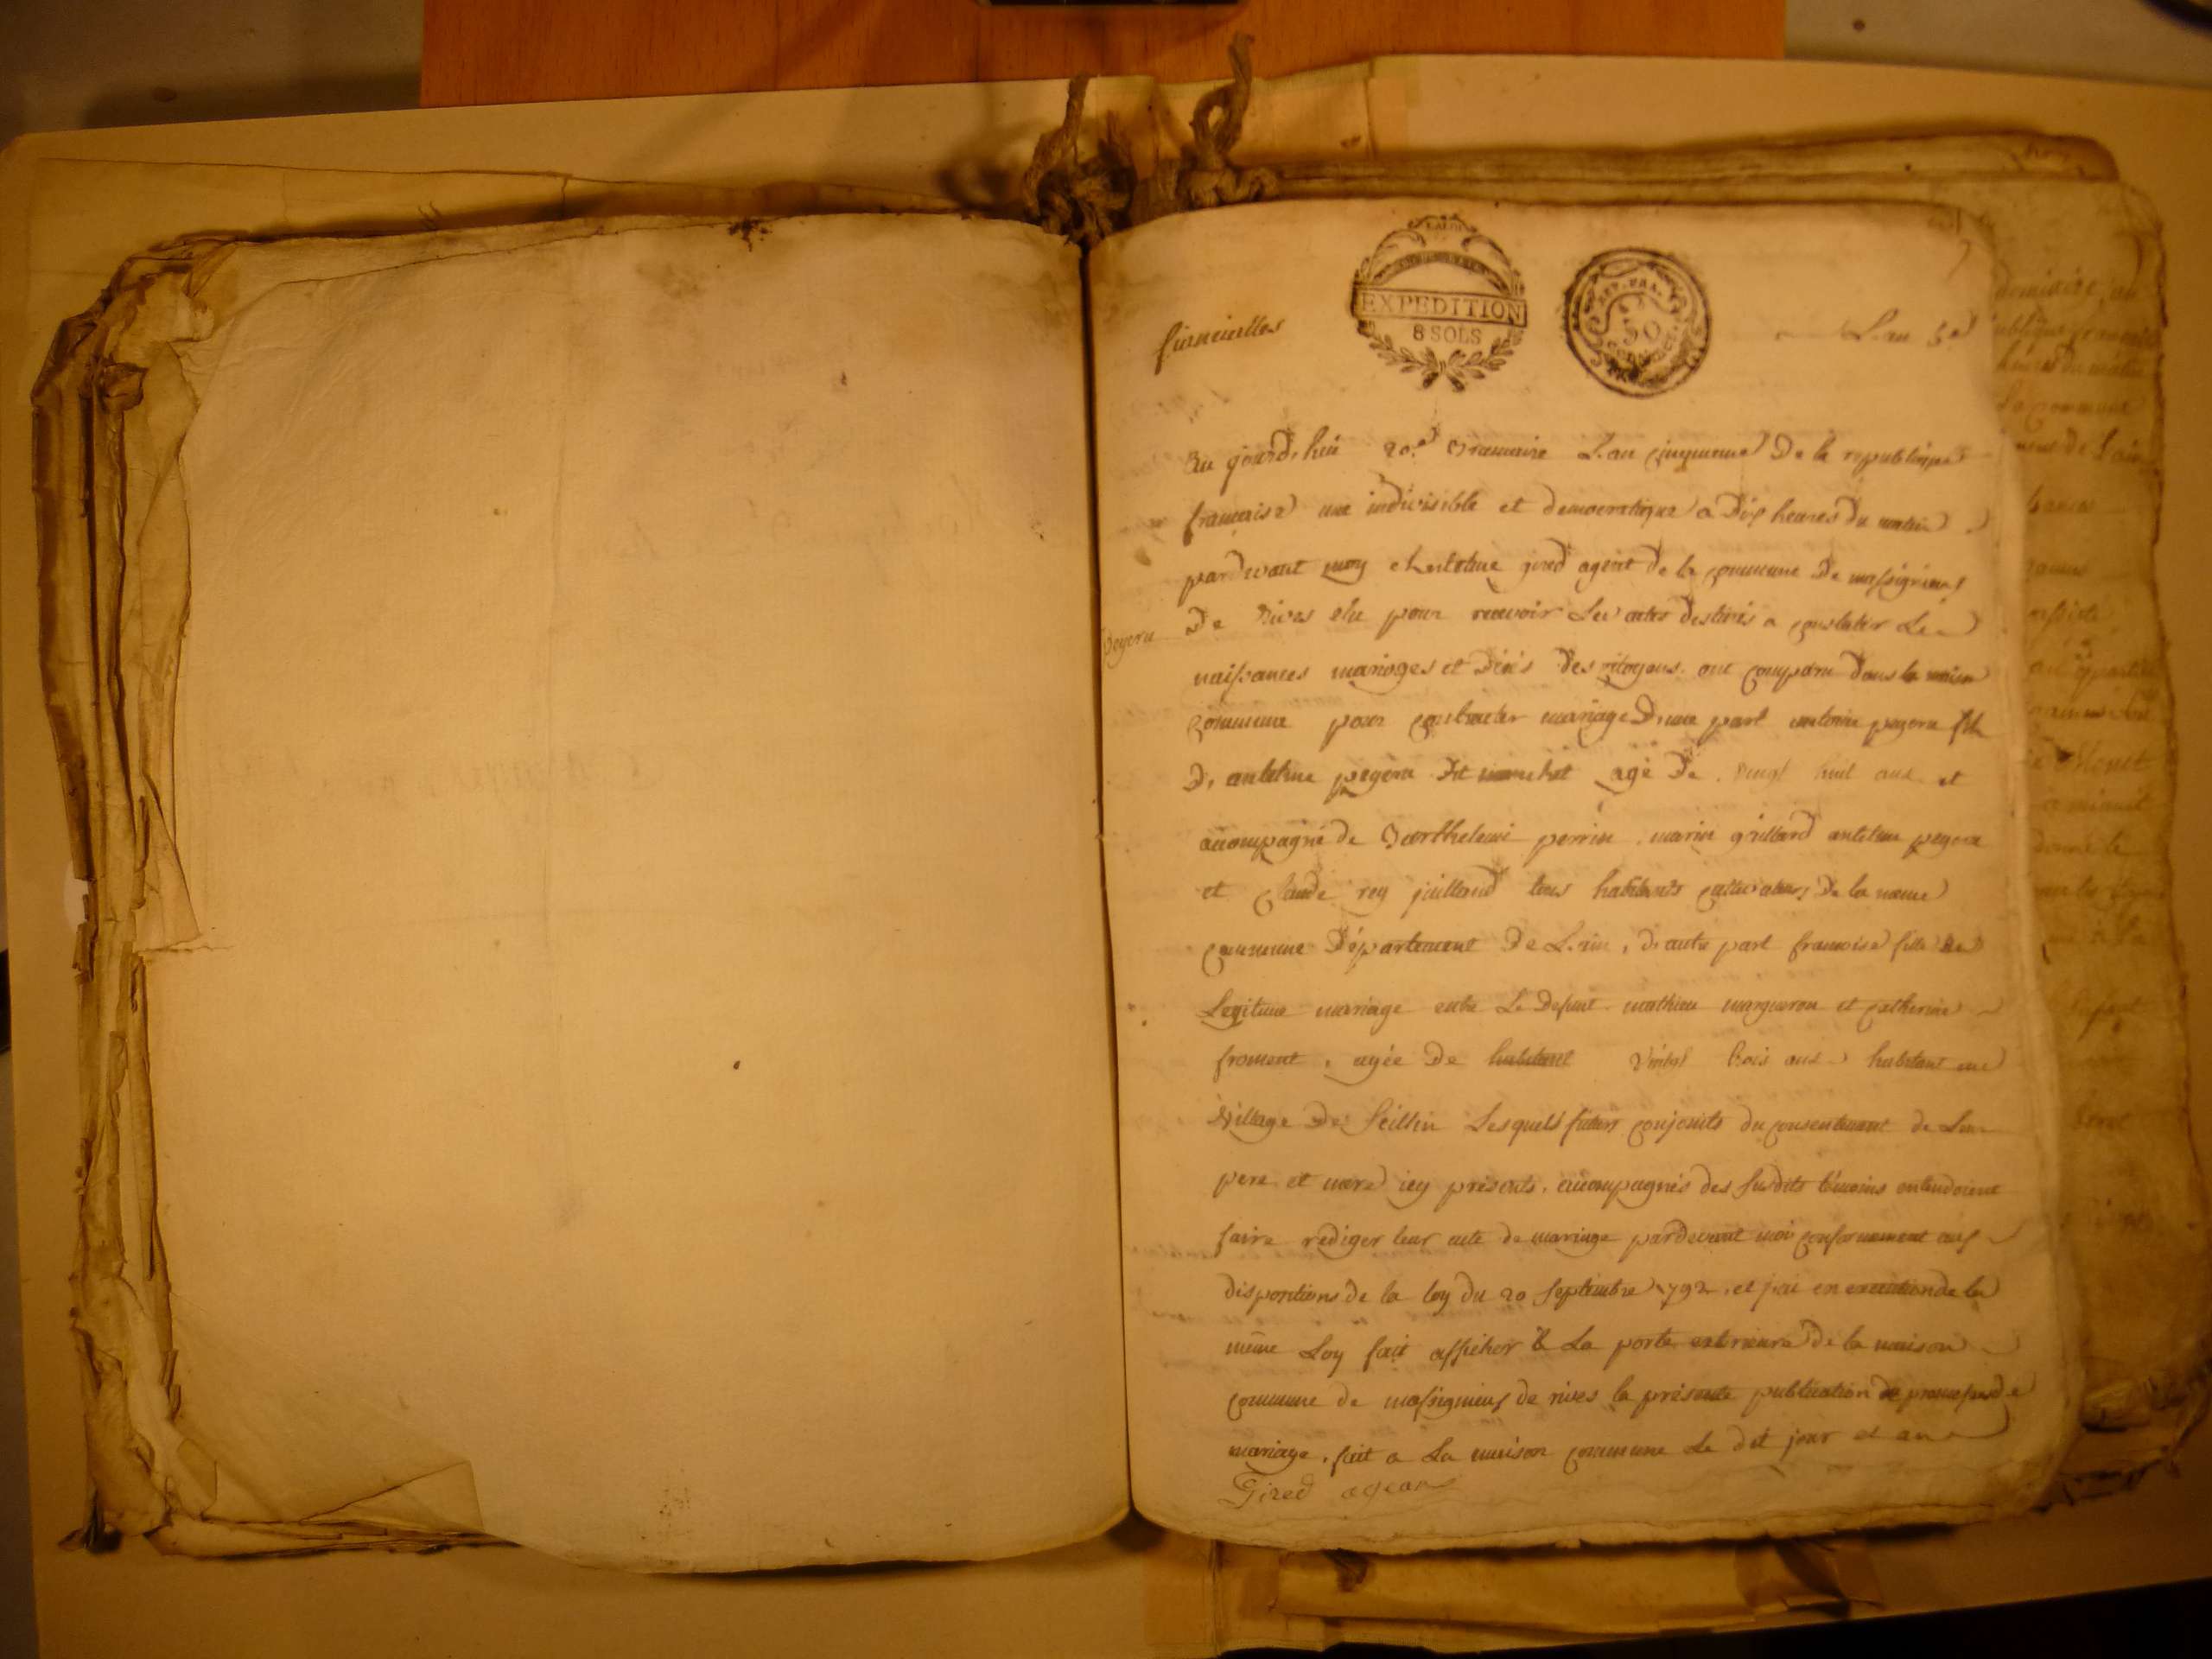 fianceailles
EXPEDITION
8 SOLS
REP. FRA.
50
L'an 5e
Au jourd'hui 20e Brumaire L'an cinquieme De la republique
francaise une indivisible et democratique a Dix heures du matin
pardevant moy Anthelme gired agent de la commune De massignieux
De Rives elu pour recevoir Les actes destinés a constater Les
peyoru
naissances mariages et décès des citoyens. ont comparu dans la maison
commune pour contracter mariage D'une part antoine pegoru fils
D'anthelme pegoru Dit agé De vingt huit ans et
accompagné de Barthelemi perrin, marin grillard anthelme pegoru
et Claude rey juilland tous habitants cultivateurs De la meme
commune Département De L'ain, d'autre part francoise fille De
Legitime mariage entre Le Defunt mathieu margueron et catherine
froment, agée De habitant vingt trois ans habitant au
village De Seillin Lesquels futurs conjoints du consentement de Leur
pere et mere icy présents, accompagnés des susdits témoins entendoient
faire rédiger leur acte de mariage pardevant moi conformement aux
dispositions de la loy du 20 septembre 1792, et j'ai en execution de la
même Loy fait afficher a La porte exterieure De la maison
commune de massignieux de rives la présente publication de promesse de
mariage, fait a La maison commune Le dit jour et an
Gired agean